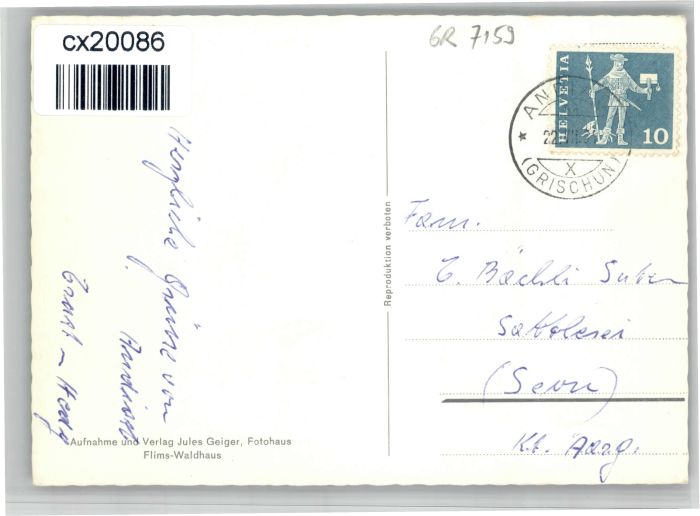 cx20086
GR 7159
HELVETIA
10
AND
22. VII.
X
(GRISCHUN)
Herzliche Grüsse von
Andiast
Ernst u Hedy
Reproduktion verboten
Fam.
E. Bächli Suter
Sattlerei
(Seon)
Kt. Aarg.
Aufnahme und Verlag Jules Geiger, Fotohaus
Flims-Waldhaus